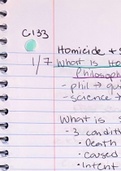 C133
Homicide + S
1/7 What is Ho
Philosoph
- phil → qu
- science →
What is S
- 3 condit
• Death
• Caused
• Intent